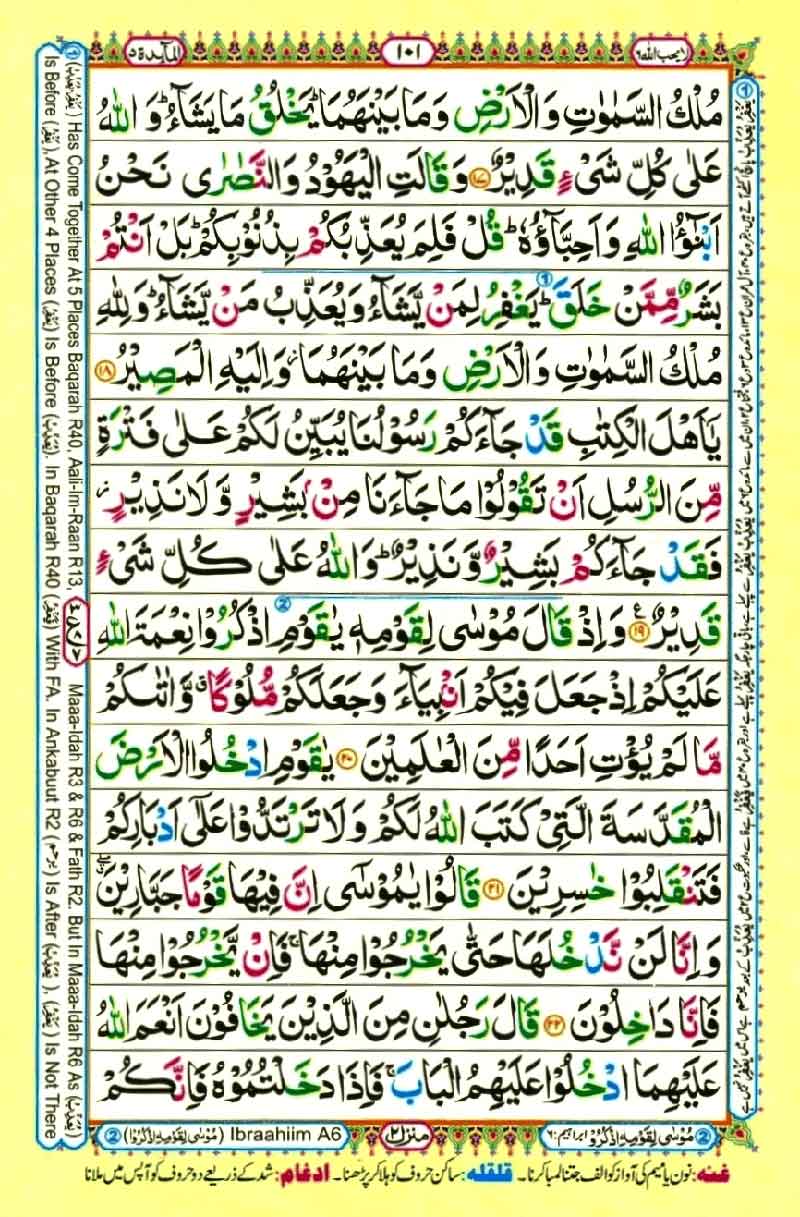 لا یحب اللہ ٦
١٠١
المآىِٕدة ٥
مُلْكُ السَّمٰوٰتِ وَالْاَرْضِ وَمَا بَيْنَهُمَا ؕ يَخْلُقُ مَا يَشَآءُ ؕ وَاللّٰهُ
عَلٰى كُلِّ شَىْءٍ قَدِيْرٌ ﴿١٧﴾ وَقَالَتِ الْيَهُوْدُ وَالنَّصٰرٰى نَحْنُ
اَبْنٰٓؤُا اللّٰهِ وَاَحِبَّآؤُهٗ ؕ قُلْ فَلِمَ يُعَذِّبُكُمْ بِذُنُوْبِكُمْ ؕ بَلْ اَنْتُمْ
بَشَرٌ مِّمَّنْ خَلَقَ ؕ يَغْفِرُ لِمَنْ يَّشَآءُ وَيُعَذِّبُ مَنْ يَّشَآءُ ؕ وَلِلّٰهِ
مُلْكُ السَّمٰوٰتِ وَالْاَرْضِ وَمَا بَيْنَهُمَا ؗ وَاِلَيْهِ الْمَصِيْرُ ﴿١٨﴾
يٰۤاَهْلَ الْكِتٰبِ قَدْ جَآءَكُمْ رَسُوْلُنَا يُبَيِّنُ لَكُمْ عَلٰى فَتْرَةٍ
مِّنَ الرُّسُلِ اَنْ تَقُوْلُوْا مَا جَآءَنَا مِنْۢ بَشِيْرٍ وَّلَا نَذِيْرٍ ؗ
فَقَدْ جَآءَكُمْ بَشِيْرٌ وَّنَذِيْرٌ ؕ وَاللّٰهُ عَلٰى كُلِّ شَىْءٍ
قَدِيْرٌ ﴿١٩﴾ وَاِذْ قَالَ مُوْسٰى لِقَوْمِهٖ يٰقَوْمِ اذْكُرُوْا نِعْمَةَ اللّٰهِ
عَلَيْكُمْ اِذْ جَعَلَ فِيْكُمْ اَنْۢبِيَآءَ وَجَعَلَكُمْ مُّلُوْكًا ۖۗ وَّاٰتٰىكُمْ
مَّا لَمْ يُؤْتِ اَحَدًا مِّنَ الْعٰلَمِيْنَ ﴿٢٠﴾ يٰقَوْمِ ادْخُلُوا الْاَرْضَ
الْمُقَدَّسَةَ الَّتِىْ كَتَبَ اللّٰهُ لَكُمْ وَلَا تَرْتَدُّوْا عَلٰۤى اَدْبَارِكُمْ
فَتَنْقَلِبُوْا خٰسِرِيْنَ ﴿٢١﴾ قَالُوْا يٰمُوْسٰۤى اِنَّ فِيْهَا قَوْمًا جَبَّارِيْنَ
وَاِنَّا لَنْ نَّدْخُلَهَا حَتّٰى يَخْرُجُوْا مِنْهَا ۚ فَاِنْ يَّخْرُجُوْا مِنْهَا
فَاِنَّا دَاخِلُوْنَ ﴿٢٢﴾ قَالَ رَجُلٰنِ مِنَ الَّذِيْنَ يَخَافُوْنَ اَنْعَمَ اللّٰهُ
عَلَيْهِمَا ادْخُلُوْا عَلَيْهِمُ الْبَابَ ۚ فَاِذَا دَخَلْتُمُوْهُ فَاِنَّكُمْ
① (يَغْفِرُ يُعَذِّبُ) Has Come Together At 5 Places Baqarah R40, Aali-Im-Raan R13, Maaa-Idah R3 & R6 & Fath R2. But In Maaa-Idah R6 As (يُعَذِّبُ)
Is Before (يَغْفِرُ), At Other 4 Places (يَغْفِرُ) Is Before (يُعَذِّبُ). In Baqarah R40 (فَيَغْفِرُ) With FA. In Ankabuut R2 (يَرْحَمُ) Is After (يُعَذِّبُ), (يَغْفِرُ) Is Not There
② مُوْسٰى لِقَوْمِهِ اذْكُرُوْا ابراہیم: ٦
منزل ٢
② (مُوْسٰى لِقَوْمِهِ اذْكُرُوْا) Ibraahiim A6
غنه: نون یا میم کی آواز کو الف جتنا لمبا کرنا۔ قلقله: ساکن حروف کو ہلا کر پڑھنا۔ ادغام: شد کے ذریعے دو حروف کو آپس میں ملانا